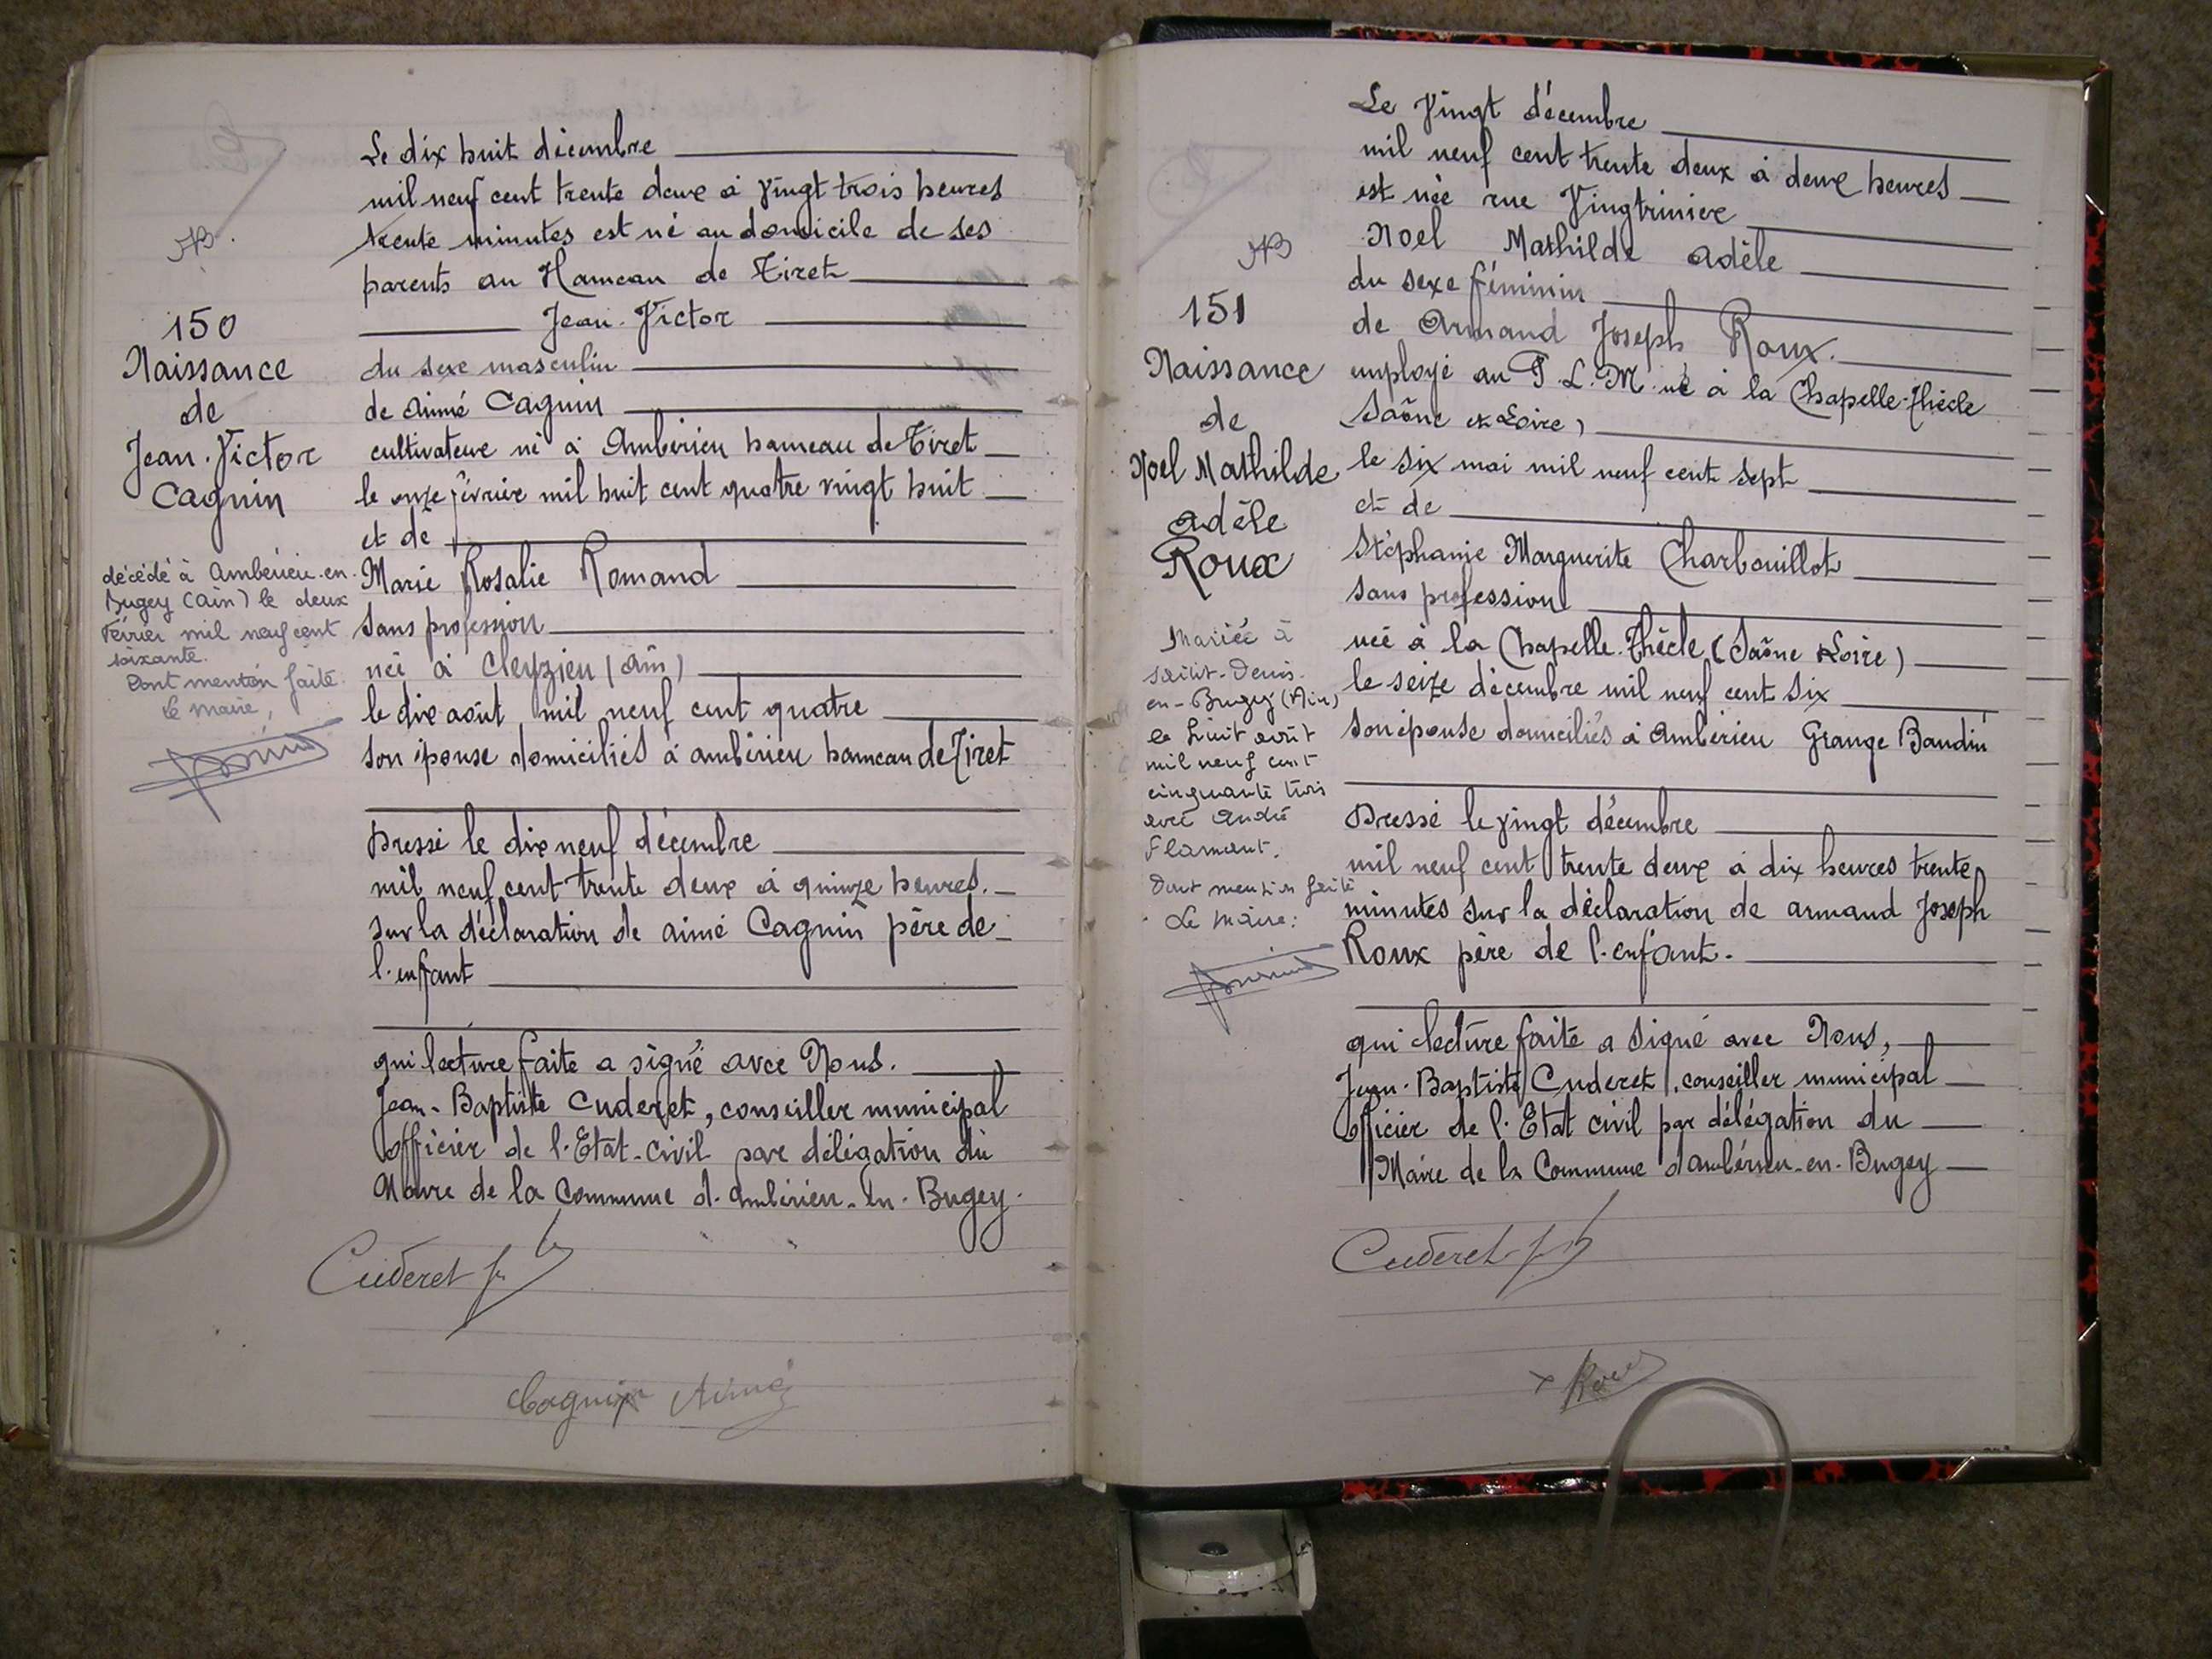 150
Naissance
de
Jean-Victor
Cagnin
décédé à Ambérieu-en-
Bugey (Ain) le deux
février mil neuf cent
soixante.
Dont mention faite.
Le Maire,
Le dix huit décembre
mil neuf cent trente deux à vingt trois heures
trente minutes est né au domicile de ses
parents au Hameau de Tiret
Jean-Victor
du sexe masculin
de Aimé Cagnin
cultivateur né à Ambérieu hameau de Tiret
le onze février mil huit cent quatre vingt huit
et de
Marie Rosalie Romand
sans profession
née à Cleyzieu (Ain)
le dix août mil neuf cent quatre
son épouse domiciliés à Ambérieu hameau de Tiret
Dressé le dix neuf décembre
mil neuf cent trente deux à quinze heures.
sur la déclaration de Aimé Cagnin père de
l'enfant
qui lecture faite a signé avec Nous.
Jean-Baptiste Cuderet, conseiller municipal
officier de l'Etat-civil par délégation du
Maire de la Commune d'Ambérieu-en-Bugey.
Cuderet
Cagnin Aimé
151
Naissance
de
Noel Mathilde
Adèle
Roux
Mariée à
Saint-Denis-
en-Bugey (Ain)
le huit août
mil neuf cent
cinquante trois
avec André
Flamant.
Dont mention faite
Le Maire:
Le vingt décembre
mil neuf cent trente deux à deux heures
est née rue Vingtrinier
Noel Mathilde Adèle
du sexe féminin
de Armand Joseph Roux.
employé au P.L.M. né à la Chapelle-Thècle
Saône et Loire)
le six mai mil neuf cent sept
et de
Stéphanie Marguerite Charbouillot
sans profession
née à la Chapelle-Thècle (Saône & Loire)
le seize décembre mil neuf cent six
son épouse domiciliés à Ambérieu Grange Baudin
Dressé le vingt décembre
mil neuf cent trente deux à dix heures trente
minutes sur la déclaration de Armand Joseph
Roux père de l'enfant.
qui lecture faite a signé avec Nous,
Jean-Baptiste Cuderet, conseiller municipal
officier de l'Etat civil par délégation du
Maire de la Commune d'Ambérieu-en-Bugey
Cuderet
Roux